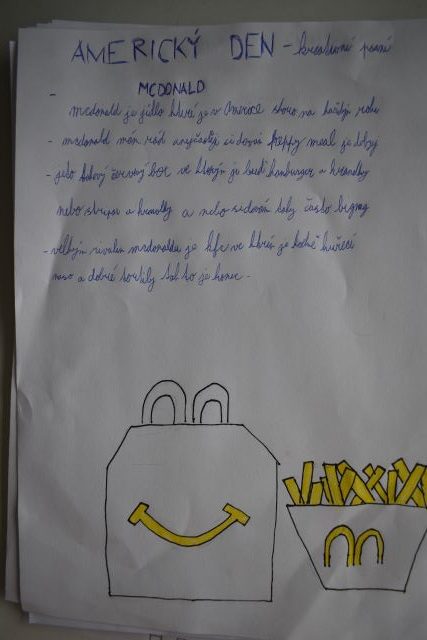 AMERICKÝ DEN - kreativní psaní
- MCDONALD
mcdonald je jídlo které je v Americe skoro na každým rohu
- mcdonald mám rád nejčastěji si dávám heppy meal je dobrý
- je to takový červený box ve kterým je buď hamburger a hranolky
nebo stripsy a hranolky a nebo si dávám taky často
- velkým rivalem mcdonaldu je kfc ve kterém je hodně kuřecí
maso a dobré tortily tak to je konec.